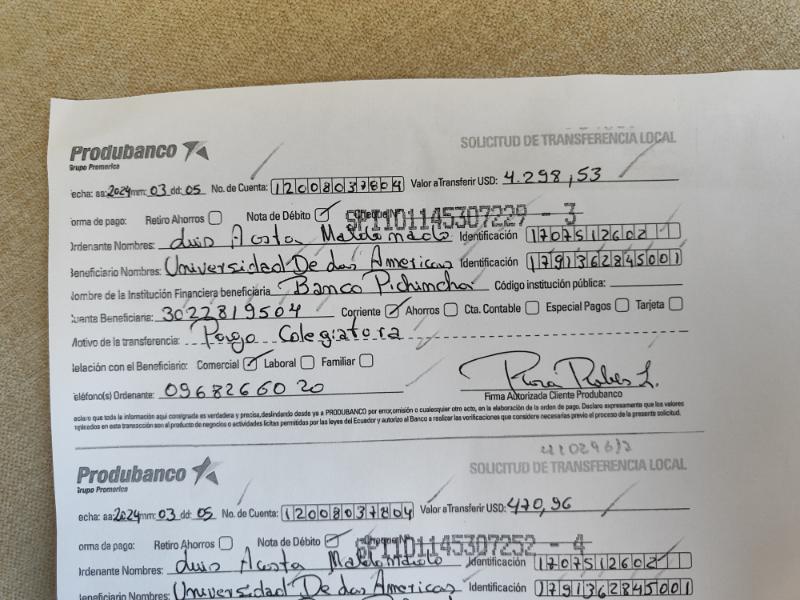 Produbanco
Grupo Promerica
SOLICITUD DE TRANSFERENCIA LOCAL
echa: aa: 2024 mm: 03 dd: 05 No. de Cuenta: 12008037804 Valor a Transferir USD: 4.298,53
orma de pago: Retiro Ahorros Nota de Débito SP1101145307229 - 3
rdenante Nombres: Luis Acosta Maldonado Identificación 1707512602
Beneficiario Nombres: Universidad De Las Americas Identificación 1791362845001
Nombre de la Institución Financiera beneficiaría Banco Pichincha Código institución pública:
uenta Beneficiaria: 3022819504 Corriente Ahorros Cta. Contable Especial Pagos Tarjeta
Motivo de la transferencia: Pago Colegiatora
elación con el Beneficiario: Comercial Laboral Familiar
eléfono(s) Ordenante: 0968266020
Firma Autorizada Cliente Produbanco
eclaro que toda la información aquí consignada es verdadera y precisa, deslindando desde ya a PRODUBANCO por error, omisión o cualesquier otro acto, en la elaboración de la orden de pago. Declaro expresamente que los valores
mpleados en esta transacción son el producto de negocios o actividades lícitas permitidas por las leyes del Ecuador y autorizo el Banco a realizar las verificaciones que considere necesarias previo el proceso de la presente solicitud.
Produbanco
Grupo Promerica
SOLICITUD DE TRANSFERENCIA LOCAL
echa: aa: 2024 mm: 03 dd: 05 No. de Cuenta: 12008037804 Valor a Transferir USD: 470,96
orma de pago: Retiro Ahorros Nota de Débito SP1101145307252 - 4
rdenante Nombres: Luis Acosta Maldonado Identificación 1707512602
Beneficiario Nombres: Universidad De Las Americas Identificación 1791362845001